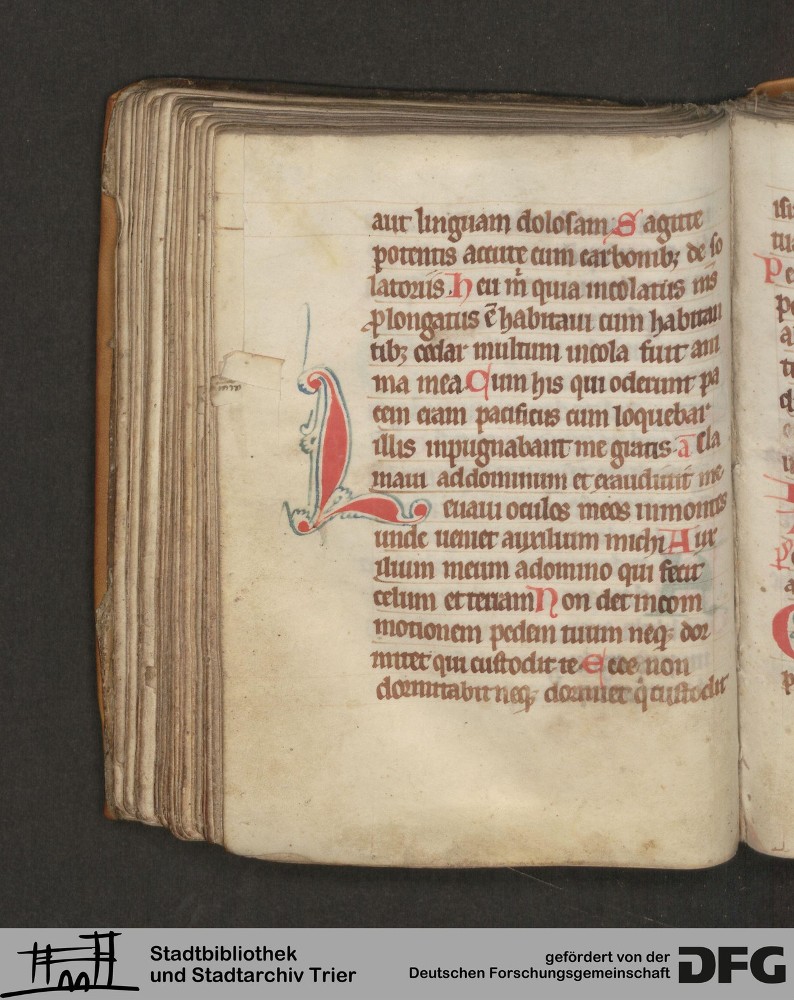 aut linguam dolosam Sagitte
potentis accute cum carbonibꝫ de so
latoriis. Heu m̄ quia incolatus m̅s
ꝓlongatus ē habitaui cum habitan
tibꝫ cedar multum incola fuit ani
ma mea Cum his qui oderunt pa
cem eram pacificus cum loquebar
illis inpugnabant me gratis. a̅ Cla
maui addominum et exaudiuit me
Leuaui oculos meos inmontes
unde ueniet auxilium michi Aux
ilium meum adomino qui fecit
celum et terram Non det incom
motionem pedem tuum neqꝫ dor
mitet qui custodit te Ecce non
dormitabit neqꝫ dormiet q̇ custodit
Stadtbibliothek
und Stadtarchiv Trier
gefördert von der
Deutschen Forschungsgemeinschaft
DFG